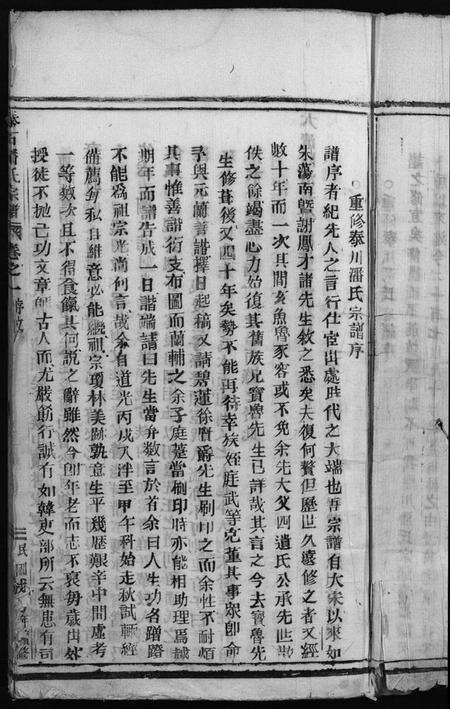 重修泰川潘氏宗譜序
譜序者紀先人之言行仕宦出處世代之大端也吾宗譜自大宋以來如
朱蕩南暨謝鳳才諸先生敘之悉矣夫復何贅但歷世久遠修之者又經
數十年而一次其間亥魚魯豕容或不免余先大父四遺氏公承先世散
佚之餘竭盡心力始復其舊族兄寶魯先生已詳哉其言之今去寶魯先
生修葺後又四十年矣勢不能再待幸族姪庭武等克董其事眾即命
予與元蘭善諧擇日起稿又請碧蓮徐賢爵先生刷印之而余性不耐煩
其事惟善諧衍支布圖而蘭輔之余子庭楚當刷印時亦能相助理焉越
期年而譜告成一日諧端請曰先生當弁數言於首余曰人生功名蹭蹬
不能為祖宗光尚何言哉余自道光丙戌入泮至甲午科始走秋試輒經
備薦男私自維意必能繼祖宗瓊林美跡孰意生平幾歷艱辛中間虛考
一等數次且不得食餼其何說之辭雖然今卽年老而志不衰每歲出外
授徒不拋己功文章師古人而尤嚴飭行誠有如韓吏部所云無患有司
泰川潘氏宗譜
卷之一
民國戊